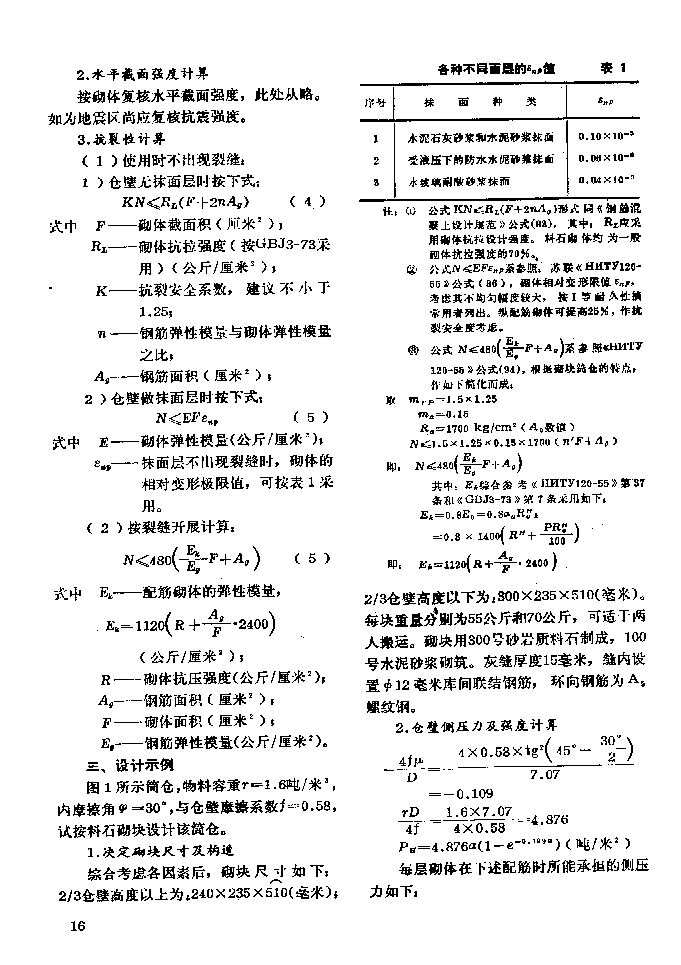 2.水平截面强度计算
按砌体复核水平截面强度，此处从略。
如为地震区尚应复核抗震强度。
3.抗裂性计算
（1）使用时不出现裂缝：
1）仓壁无抹面层时按下式：
KN≤R_L(F+2nA_g) （4）
式中 F——砌体截面积（厘米²）；
R_L——砌体抗拉强度（按GBJ3-73采
用）（公斤/厘米²）；
K——抗裂安全系数，建议不小于
1.25；
n——钢筋弹性模量与砌体弹性模量
之比；
A_g——钢筋面积（厘米²）；
2）仓壁做抹面层时按下式：
N≤EFε_np （5）
式中 E——砌体弹性模量(公斤/厘米²)；
ε_np——抹面层不出现裂缝时，砌体的
相对变形极限值，可按表1采
用。
（2）按裂缝开展计算：
N≤480(E_k/E_g F+A_g) （5）
式中 E_k——配筋砌体的弹性模量，
E_k=1120(R+A_g/F·2400)
（公斤/厘米²）；
R——砌体抗压强度(公斤/厘米²)；
A_g——钢筋面积（厘米²）；
F——砌体面积（厘米²）；
E_g——钢筋弹性模量(公斤/厘米²)。
三、设计示例
图1所示筒仓，物料容重r=1.6吨/米³，
内摩擦角φ=30°，与仓壁摩擦系数f=0.58，
试按料石砌块设计该筒仓。
1.决定砌块尺寸及构造
综合考虑各因素后，砌块尺寸如下：
2/3仓壁高度以上为：240×235×510(毫米)；
16
各种不同面层的ε_np值 表 1
序号 抹面种类 ε_np
1 水泥石灰砂浆和水泥砂浆抹面 0.10×10⁻³
2 受液压下的防水水泥砂浆抹面
3 水玻璃耐酸砂浆抹面
注：① 公式KN≤R_L(F+2nA_g)形式同《钢筋混
凝土设计规范》公式(82)，其中：R_L应采
用砌体抗拉设计强度。料石砌体约为一般
砌体抗拉强度的70%。
② 公式N≤EFε_np系参照，苏联《НИТУ120-
55》公式(86)，砌体相对变形限值ε_np，
考虑其不均匀幅度较大，按I等耐久性横
常用者列出。纵配筋砌体可提高25%，作抗
裂安全度考虑。
③ 公式 N≤480(E_k/E_g F+A_g)系参照《НИТУ
120-55》公式(94)，根据砌块筒仓的特点，
作如下简化而成：
取 m_rp=1.5×1.25
R_a=1700 kg/cm²（A_g数值）
N≤1.5×1.25×0.15×1700（n′F+A_g）
即： N≤480(E_k/E_g F+A_g)
其中：E_k综合参考《НИТУ120-55》第37
条和《GBJ3-73》第7条采用如下：
即： E_k=1120(R+A_g/F·2400)
2/3仓壁高度以下为：300×235×510(毫米)。
每块重量分别为55公斤和70公斤，可适于两
人搬运。砌块用300号砂岩质料石制成，100
号水泥砂浆砌筑。灰缝厚度15毫米，缝内设
置φ12毫米库间联结钢筋，环向钢筋为A_5
螺纹钢。
2.仓壁侧压力及强度计算
-4fμ/D=-4×0.58×tg²(45°-30°/2)/7.07
=-0.109
rD/4f=1.6×7.07/4×0.58=4.876
P_H=4.876α(1-e⁻⁰·¹⁰⁹ᴴ)（吨/米²）
每层砌体在下述配筋时所能承担的侧压
力如下：